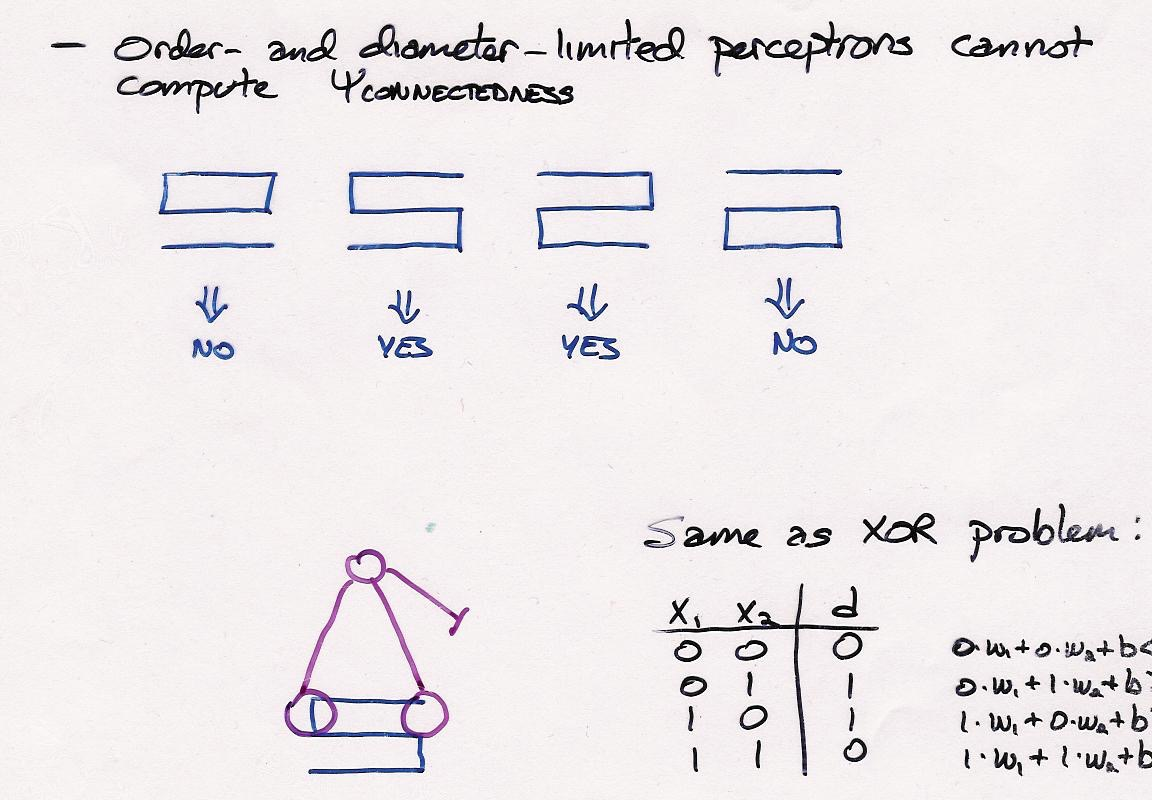 — Order- and diameter-limited perceptrons cannot
compute ΨCONNECTEDNESS
NO YES YES NO
Same as XOR problem:
x₁ x₂ d
0 0 0 0·w₁+0·w₂+b<
0 1 1 0·w₁+1·w₂+b
1 0 1 1·w₁+0·w₂+b
1 1 0 1·w₁+1·w₂+b